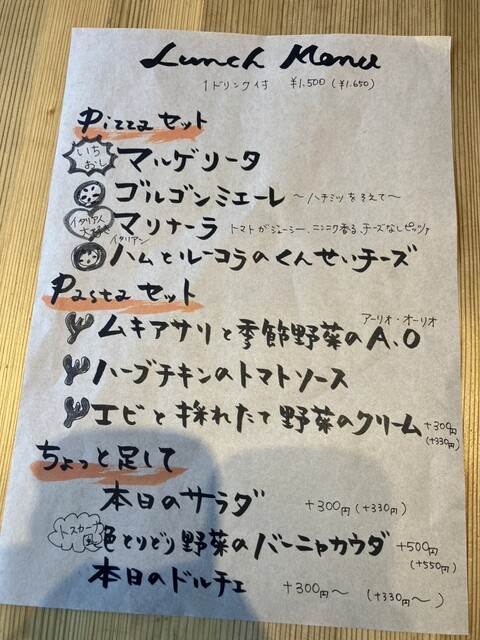 Lunch Menu
1ドリンク付 ¥1,500 (¥1,650)
Pizza セット
いちおし マルゲリータ
ゴルゴンミエーレ 〜ハチミツをそえて〜
イタリア人大好き マリナーラ トマトがジューシー、ニンニク香る、チーズなしピッツァ
イタリアン
ハムとルーコラのくんせいチーズ
Pasta セット
アーリオ・オーリオ
ムキアサリと季節野菜のA.O
ハーブチキンのトマトソース
エビと採れたて野菜のクリーム +300円
(+330円)
ちょっと足して
本日のサラダ +300円 (+330円)
トスカーナ風 色とりどり野菜のバーニャカウダ +500円
(+550円)
本日のドルチェ +300円〜 (+330円〜)